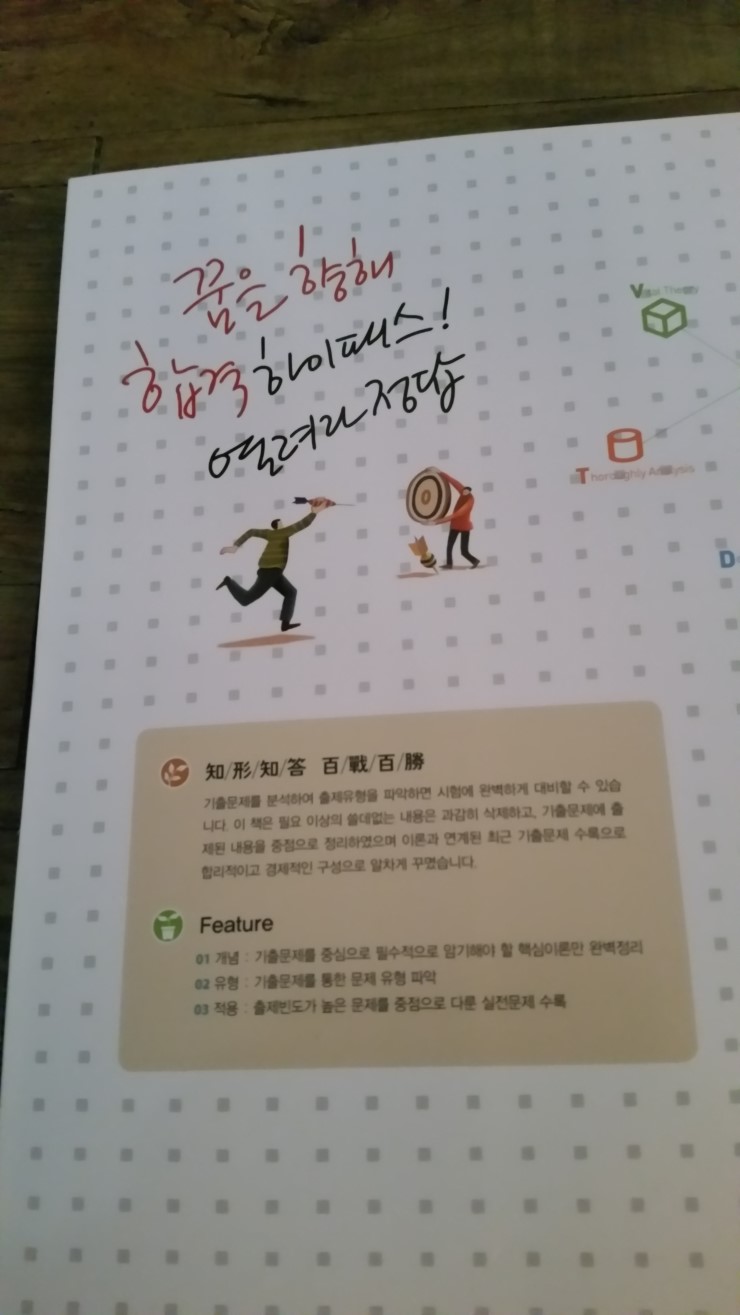 꿈을 향해
합격 하이패스!
열려라 정답
Vital Theory
Thoroughly Analysis
D
知/形/知/答 百/戰/百/勝
기출문제를 분석하여 출제유형을 파악하면 시험에 완벽하게 대비할 수 있습
니다. 이 책은 필요 이상의 쓸데없는 내용은 과감히 삭제하고, 기출문제에 출
제된 내용을 중점으로 정리하였으며 이론과 연계된 최근 기출문제 수록으로
합리적이고 경제적인 구성으로 알차게 꾸몄습니다.
Feature
01 개념 : 기출문제를 중심으로 필수적으로 암기해야 할 핵심이론만 완벽정리
02 유형 : 기출문제를 통한 문제 유형 파악
03 적용 : 출제빈도가 높은 문제를 중점으로 다룬 실전문제 수록